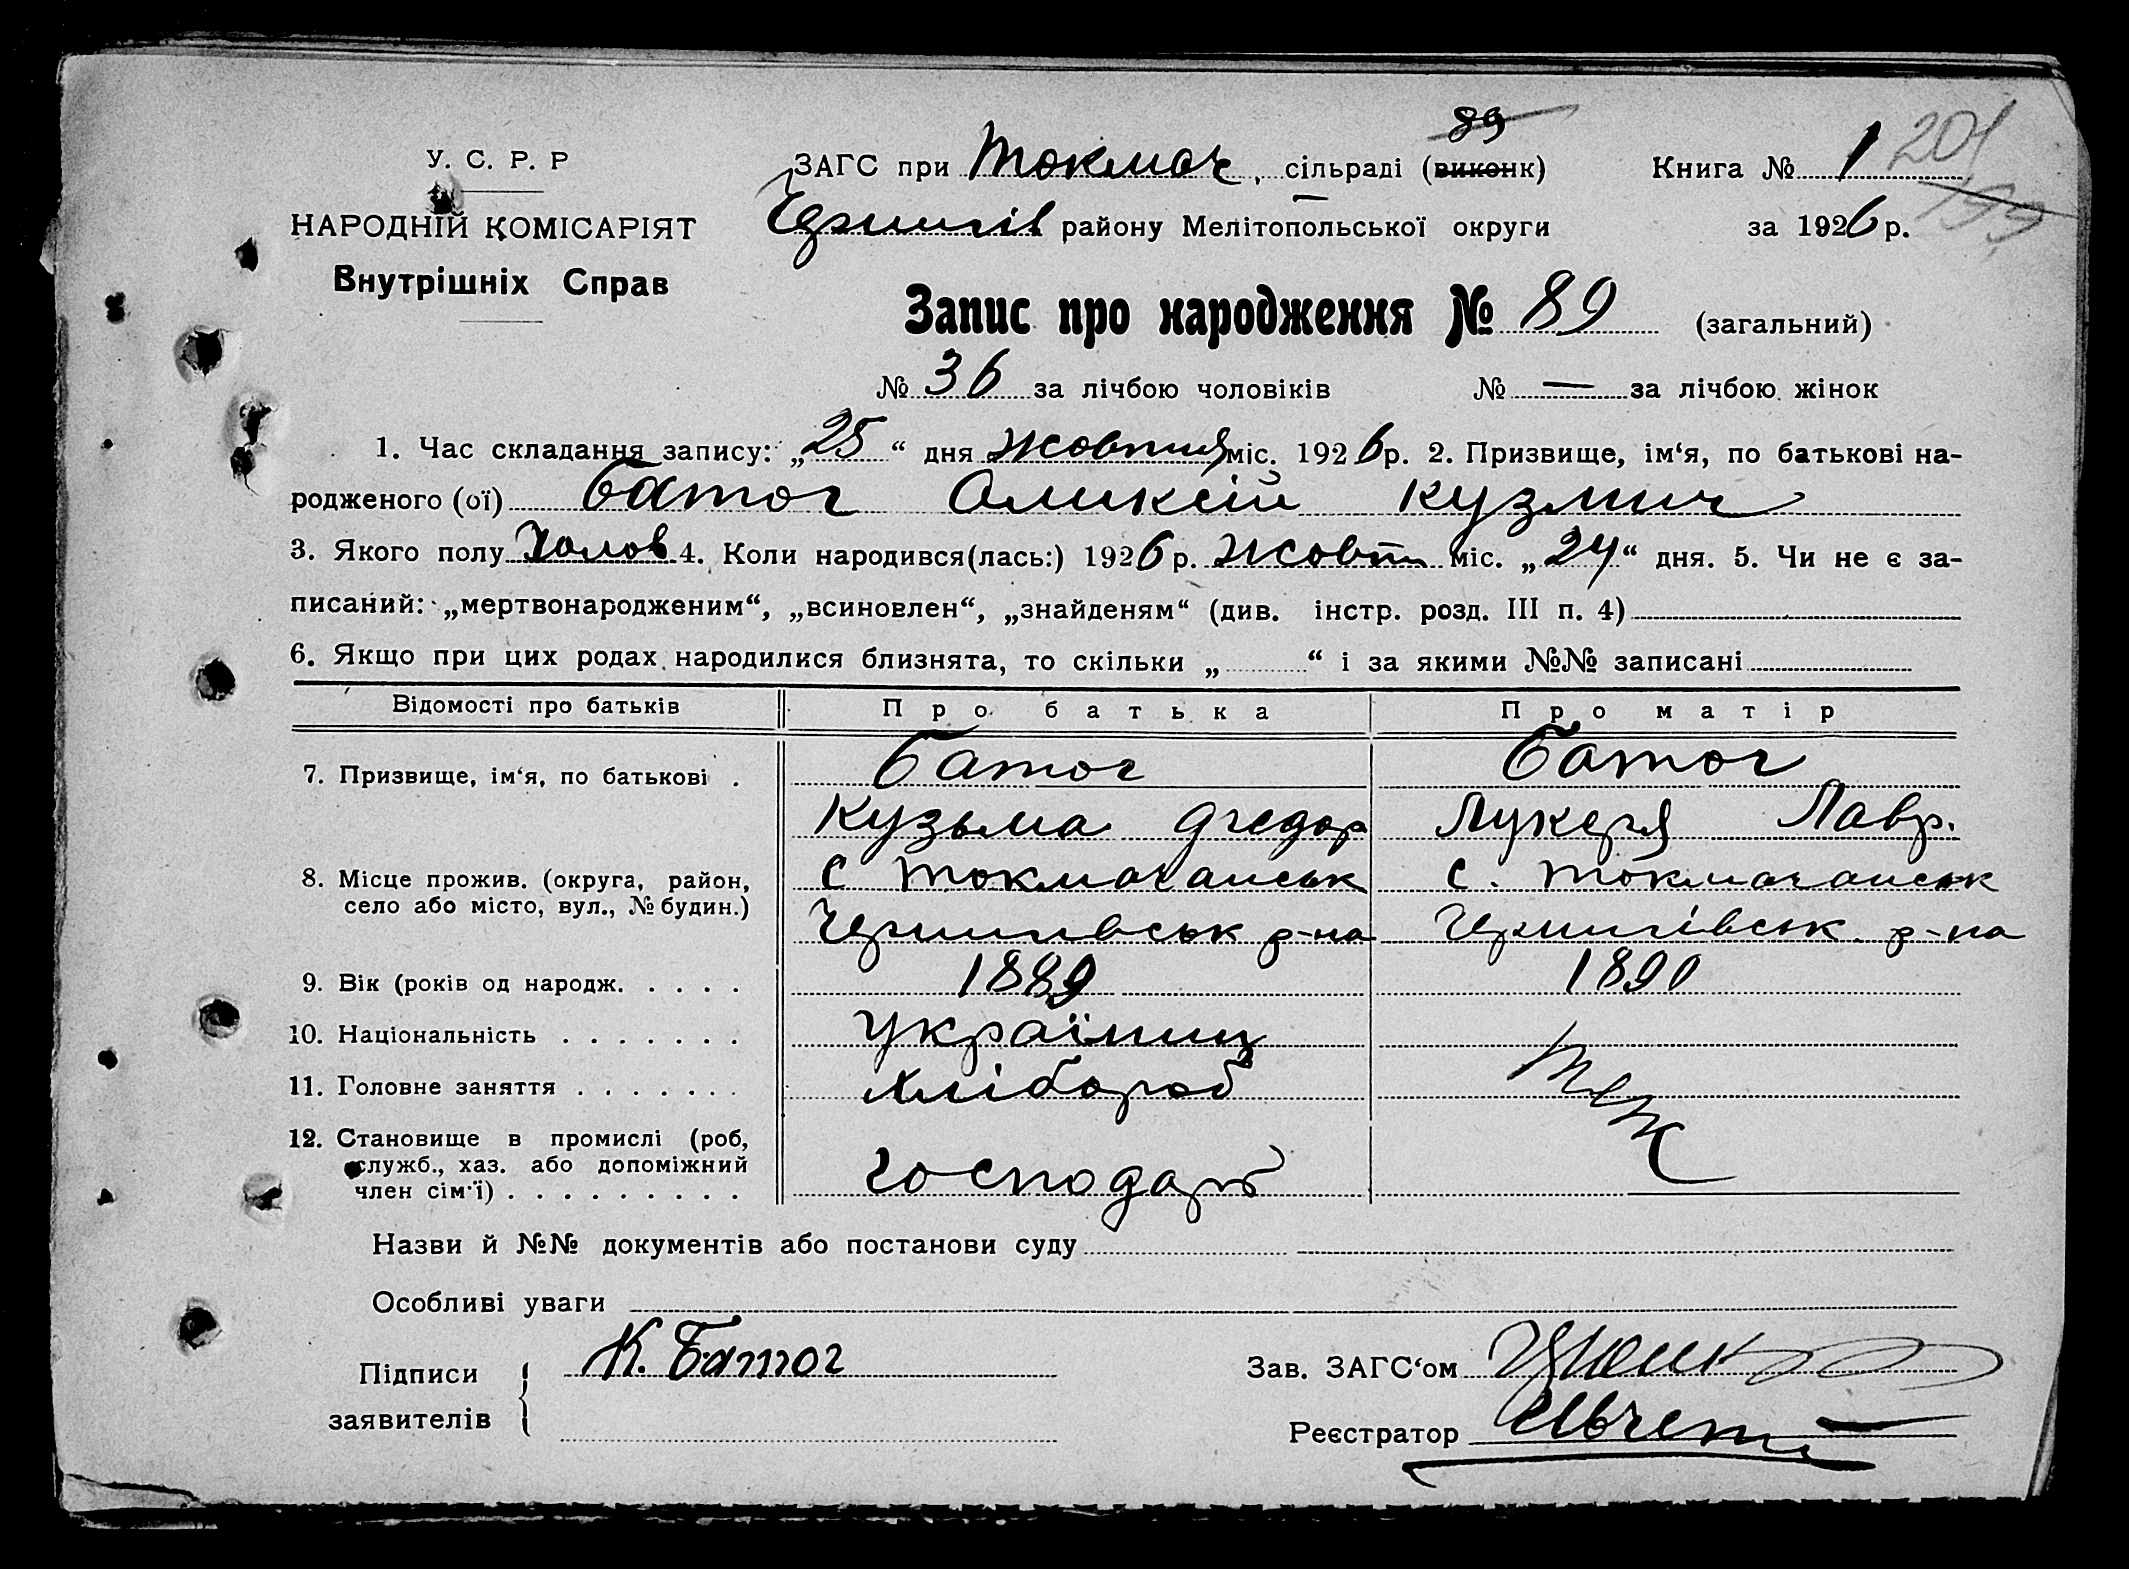 89
У. С. Р. Р
ЗАГС при Токмач, сільраді (виконк)
Книга № 1
201
199
НАРОДНІЙ КОМІСАРІЯТ
Чернигів району Мелітопольської округи
за 1926 р.
Внутрішніх Справ
Запис про народження № 89 (загальний)
№ 36 за лічбою чоловіків № — за лічбою жінок
1. Час складання запису: „25“ дня жовтня міс. 1926 р. 2. Призвище, ім‘я, по батькові на-
родженого (ої) Батог Оликсій Кузмич
3. Якого полу Чолов 4. Коли народився(лась:) 1926 р. жовтн міс. „24“ дня. 5. Чи не є за-
писаний: „мертвонародженим“, „всиновлен“, „знайденям“ (див. інстр. розд. III п. 4)
6. Якщо при цих родах народилися близнята, то скільки „ “ і за якими №№ записані
Відомості про батьків Про батька Про матір
7. Призвище, ім‘я, по батькові . Батог Батог
Кузьма Лукеря Лавр.
8. Місце прожив. (округа, район, с Токмачанськ с. Токмачанськ
село або місто, вул., № будин.) Чернигівськ р-на Чернигівськ р-на
9. Вік (років од народж. . . . . 1889 1890
10. Національність . . . . . . . українец
11. Головне заняття . . . . . . . хлібороб теж
12. Становище в промислі (роб,
служб., хаз. або допоміжний господарь
член сім‘ї) . . . . . . . . .
Назви й №№ документів або постанови суду
Особливі уваги
Підписи К. Батог
заявителів
Зав. ЗАГС‘ом
Реєстратор